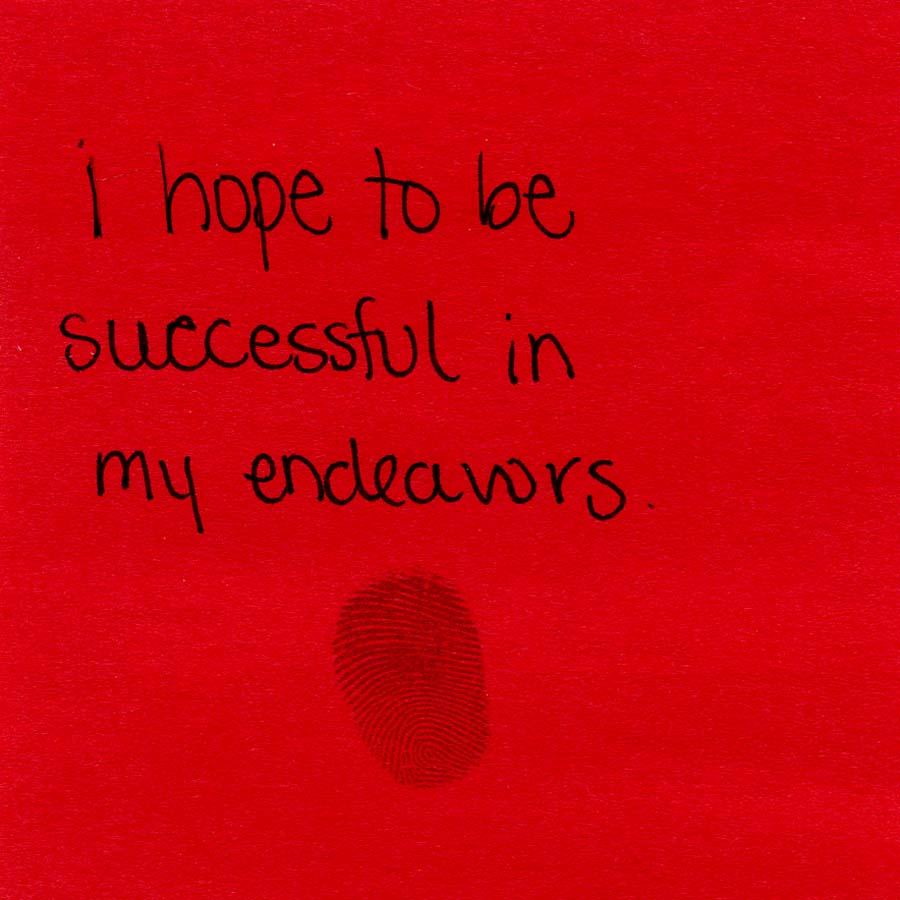 i hope to be
successful in
my endeavors.